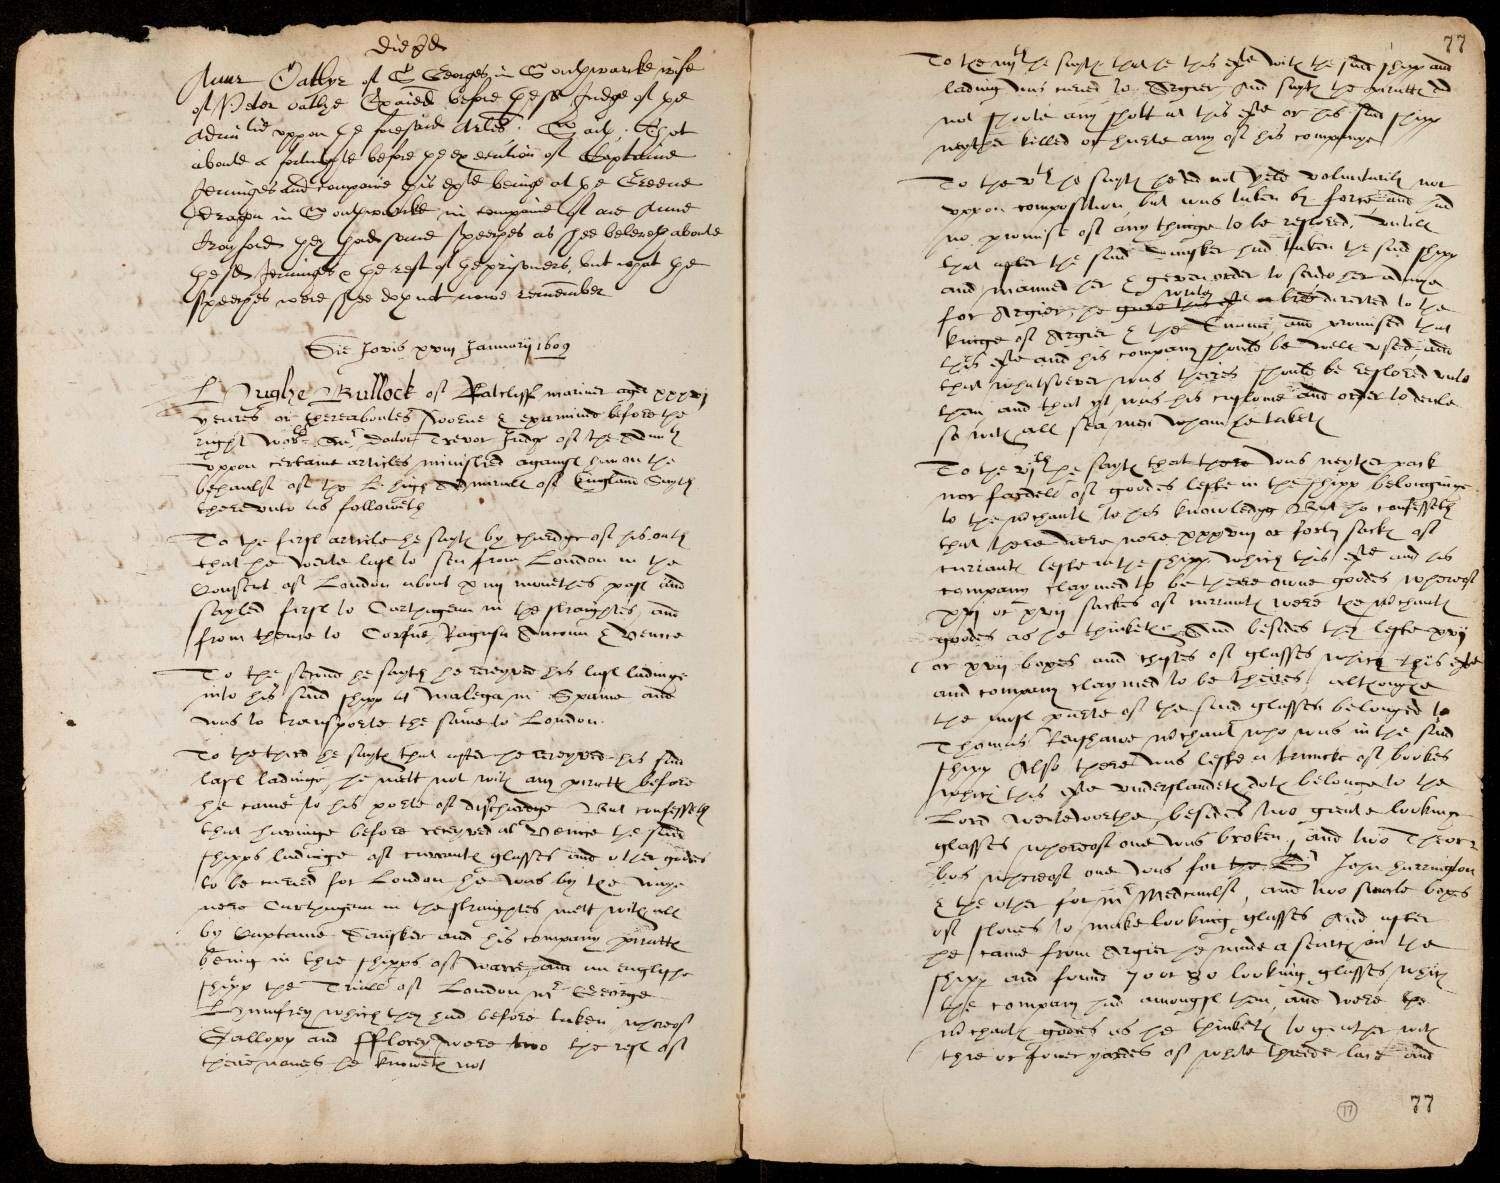 die pd
Anne Oatlye of St Georges in Southwarke wife
of Peter oatlye Exaied before ye sd Judge of ye
Admltie uppon ye foresaid Arles. Et ait, That
aboute a fortnight before ye execution of Captaine
Jenninges and companie this exte beinge at ye Greene
dragon in Southwarke in companie of one Anne
Crayford they had some speeches as shee beleveth aboute
ye sd Jenninges & the rest of ye prisoners, but what the
speeches were shee doth not nowe remember
Die Jovis xviii Januarii 1609
Hughe Bullock of Ratcliff mariner aged xxxvi
yeares or thereaboutes sworne & examined before the
right worll Mr Doctor Trevor Judge of the Admlty
uppon certaine articles ministred against him on the
behaulfe of the L. high Admirall of England Sayth
thereunto as followeth
To the first article he sayth by chardge of his oath
that he wente last to sea from London in the
Consent of London about xiiii monethes past and
sayled first to Carthagena in the straightes, and
from thence to Corfue, Ragusa Ancona & Venice
To the second he sayth he receyved his last ladinge
into his said shipp at Malega in Spaine and
was to transporte the same to London.
To the third he sayth that after he receyved his said
last ladinge he mett not with any pirattes before
he came to his porte of dischardge But confesseth
that havinge before receyved at Venice the said
shipps ladinge of currantes glasses and other goodes
to be caried for London he was by the waye
nere Carthagena in the straightes mett withall
by Captaine Dansker and his company pirattes
being in thre shipps of warre and an englishe
shipp the Triall of London mr George
Humfrey which they had before taken whereof
Gallopp and fflorey were two the rest of
theire names he knoweth not
77
To the iiijth he sayth that he this exte with the said shipp and
lading was caried to Argier And sayth the pirattes did
not shoote any shott at this exte or his said shipp
neyther killed or hurte any of his companye
To the vth he sayth he did not yeld voluntarily nor
uppon composition but was taken by force and had
no promise of any thinge to be restored. untill
that after the said Dansker had taken the said shipp
and manned her & geven order to send her awaye
for Argier, he gave this exte a writes lres directed to the
kinge of Argier & the and promised that
this exte and his company should be well used and
that whatsoever was theires should be restored unto
them and that yt was his custome and order to deale
so with all sea men whom he taketh
To the vjth he sayth that there was neyther pack
nor fardell of goodes lefte in the shipp belonginge
to the mchantes to his knowledge But he confesseth
that there were nere xxxviii or forty sackes of
currantes lefte in the shipp which this exte and his
company claymed to be there owne goodes whereof
xvj or xvij sackes of currantes were the mchantes
goodes as he thinketh And besides they lefte xvij
or xviij boxes and chystes of glasses which this exte
and company claymed to be theires, althoughe
the most parte of the said glasses belonged to
Thomas Renshawe mchant who was in the said
shipp Also there was lefte a truncke of bookes
which this exte understandeth doth belonge to the
Lord Wentworthe, besides two greate looking
glasses whereof one was broken, and two Theor
bos whereof one was for the Sr John Harrington
& the other for mr , and two smale boxes
of stones to make looking glasses And after
he came from Argier he made a search in the
shipp and found 70 or 80 looking glasses which
the company had amongst them, and were the
mchantes goodes as he thinketh to geather with
thre or fower yardes of white threede lace and
77
77